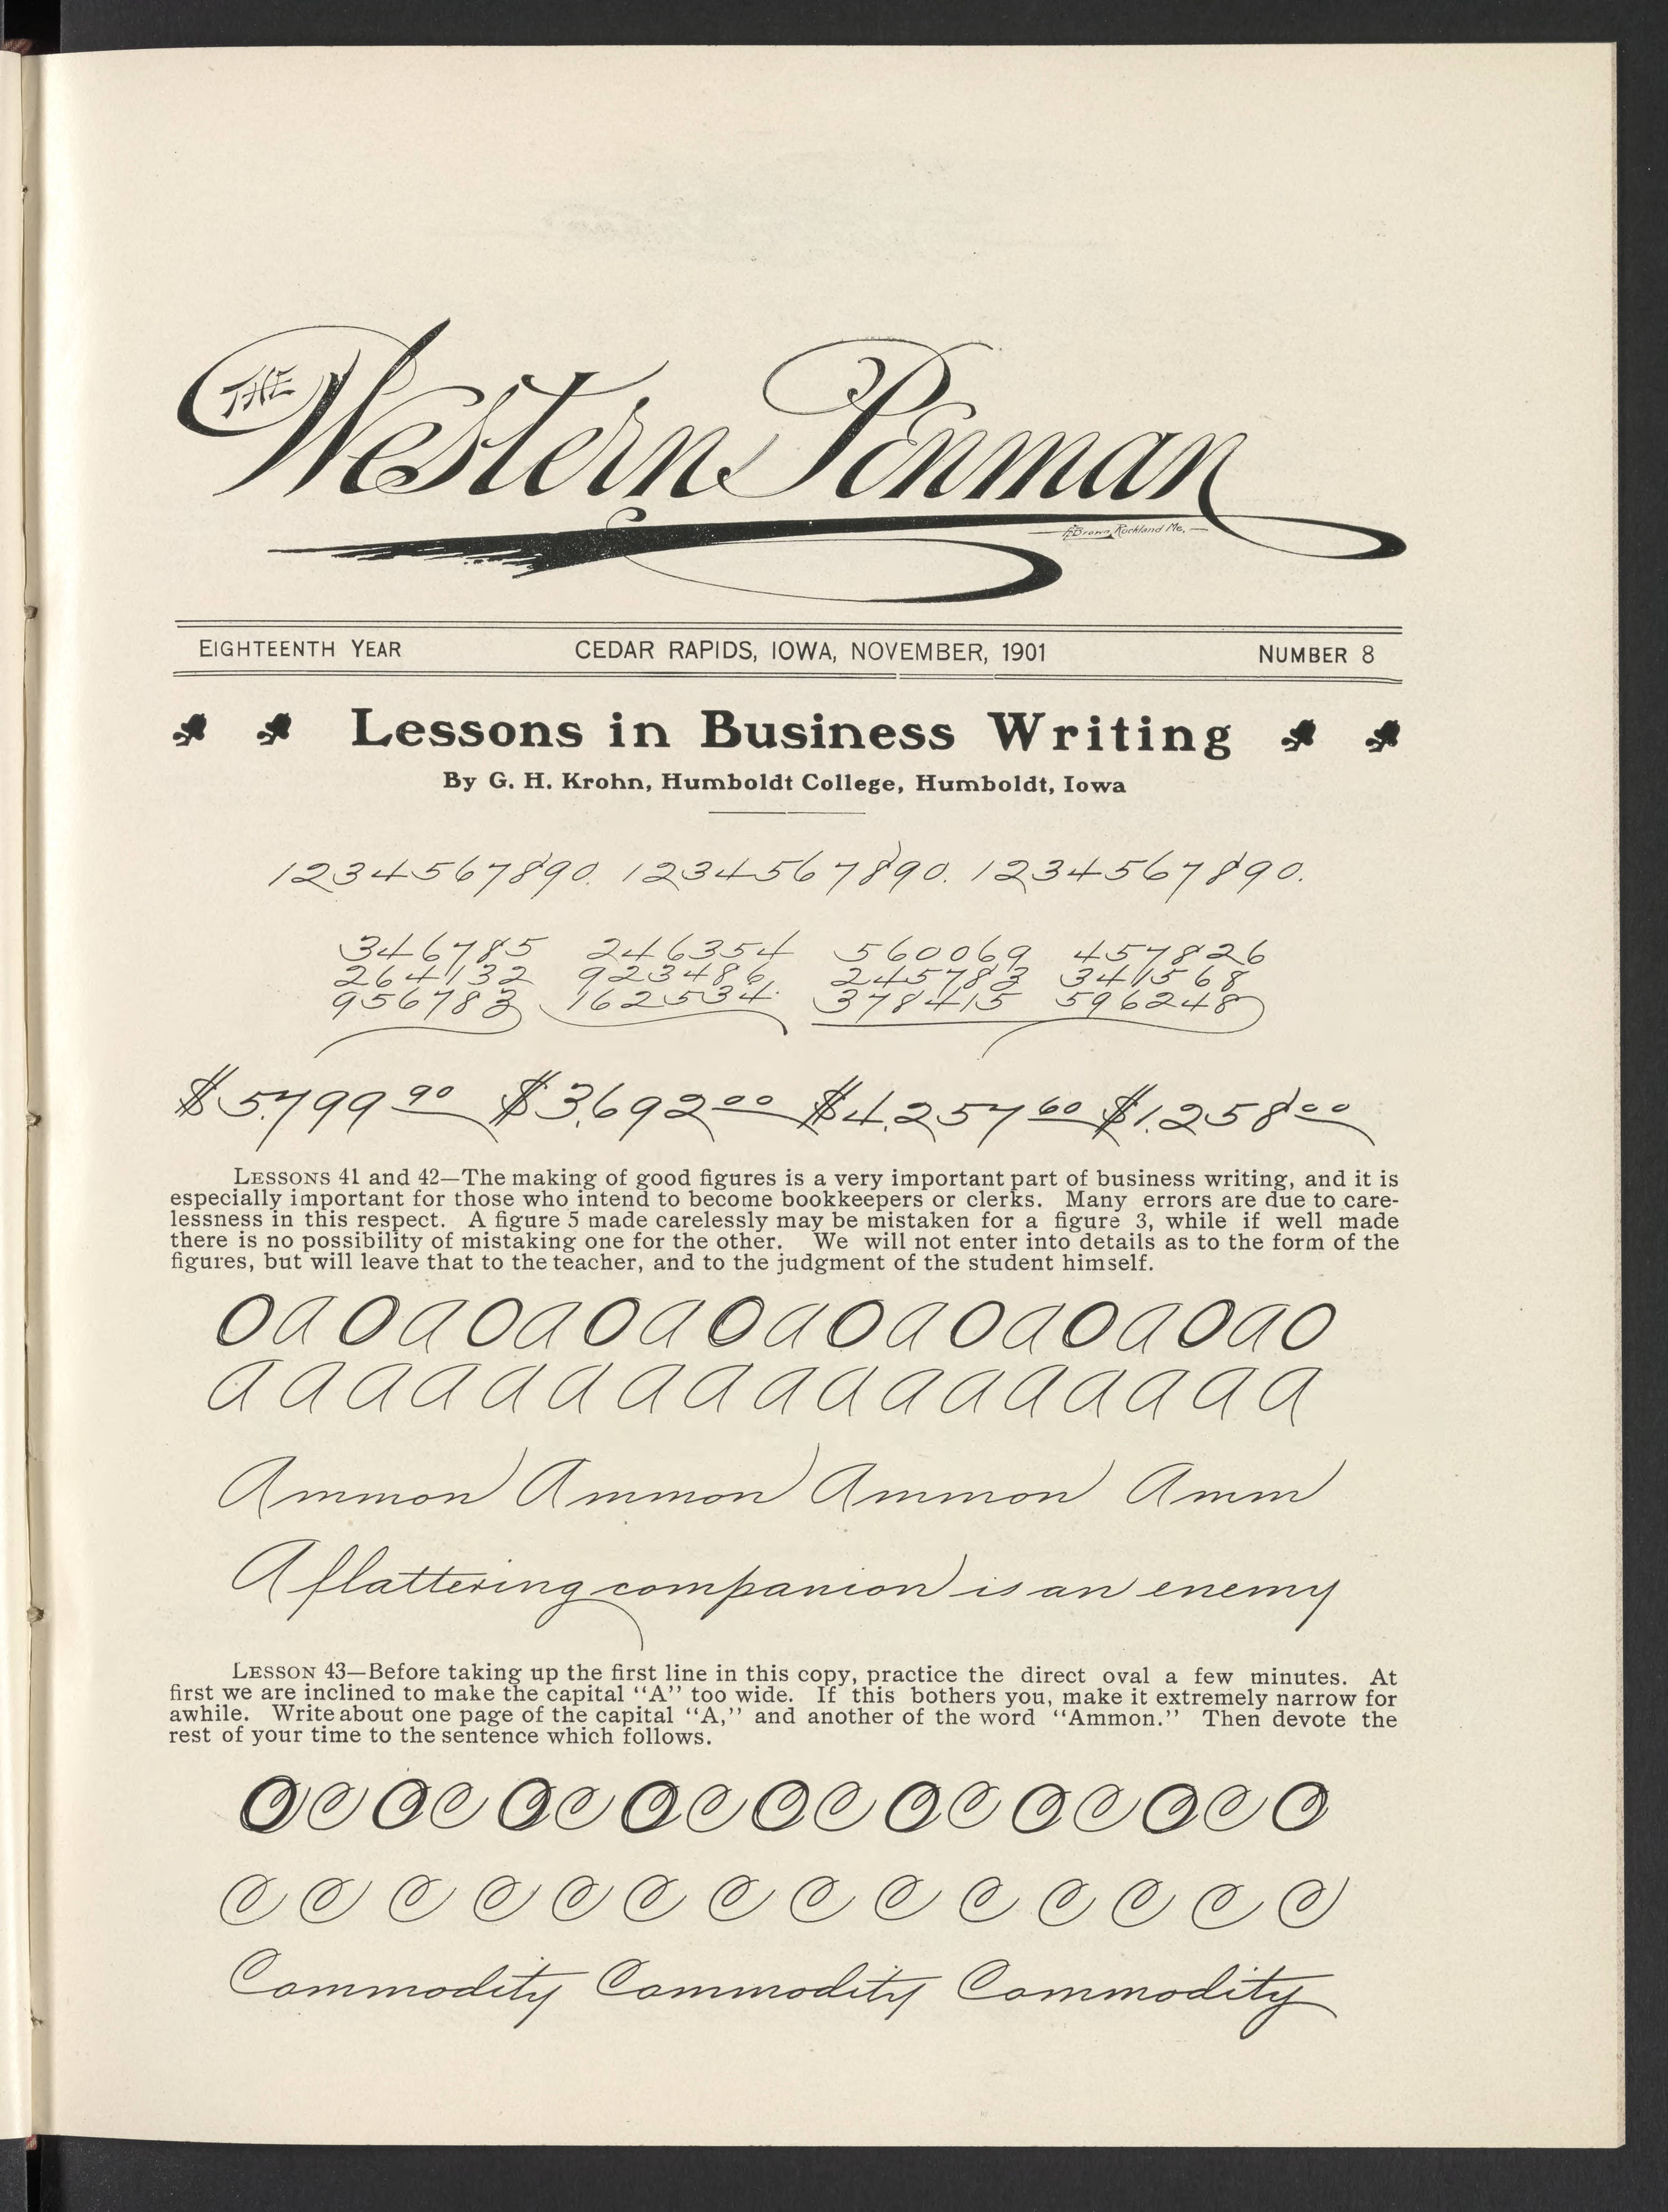 THE
Western Penman
Brown, Rockland Me.
EIGHTEENTH YEAR CEDAR RAPIDS, IOWA, NOVEMBER, 1901 NUMBER 8
Lessons in Business Writing
By G. H. Krohn, Humboldt College, Humboldt, Iowa
1234567890. 1234567890. 1234567890.
346785 246354 560069 457826
264132 923486 245783 341568
956783 162534 378415 596248
$5,799 90 $3,692 00 $4,257 60 $1,258 00
LESSONS 41 and 42—The making of good figures is a very important part of business writing, and it is
especially important for those who intend to become bookkeepers or clerks. Many errors are due to care-
lessness in this respect. A figure 5 made carelessly may be mistaken for a figure 3, while if well made
there is no possibility of mistaking one for the other. We will not enter into details as to the form of the
figures, but will leave that to the teacher, and to the judgment of the student himself.
O A O A O A O A O A O A O A O A O A O
A A A A A A A A A A A A A A A A A A
Ammon Ammon Ammon Amm
A flattering companion is an enemy
LESSON 43—Before taking up the first line in this copy, practice the direct oval a few minutes. At
first we are inclined to make the capital "A" too wide. If this bothers you, make it extremely narrow for
awhile. Write about one page of the capital "A," and another of the word "Ammon." Then devote the
rest of your time to the sentence which follows.
O C O C O C O C O C O C O C O C O
C C C C C C C C C C C C C C
Commodity Commodity Commodity